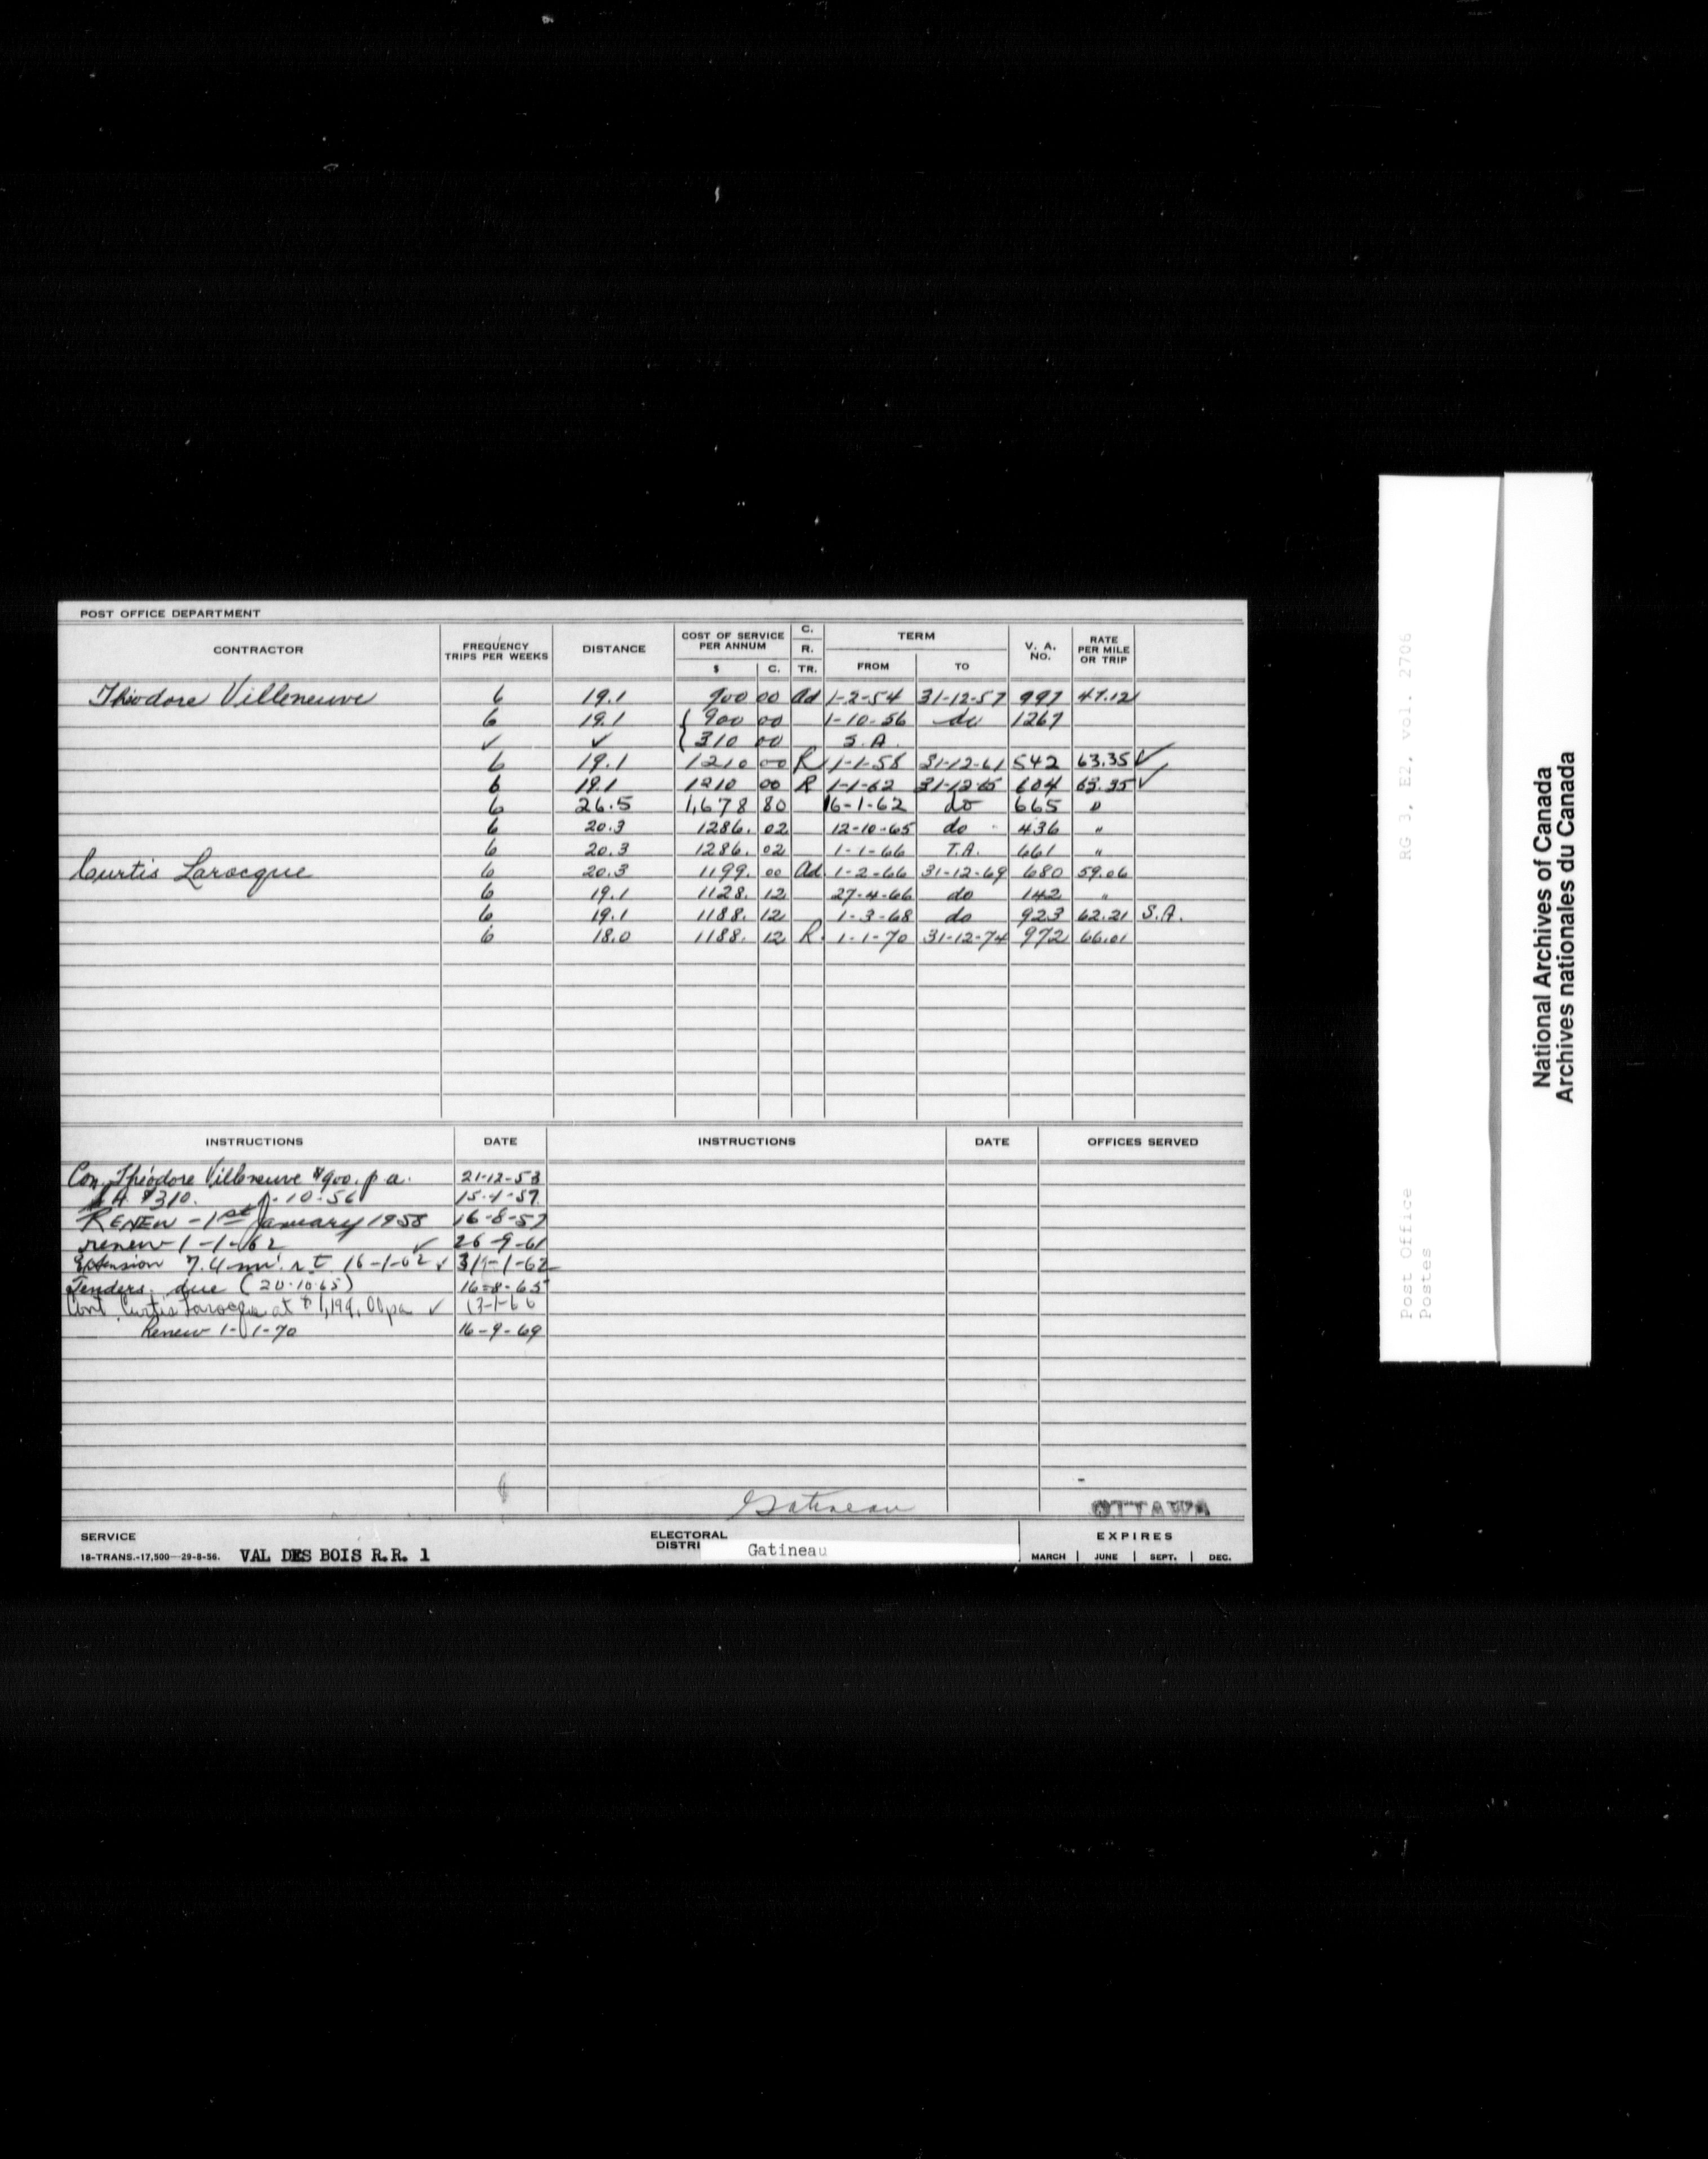 POST OFFICE DEPARTMENT
CONTRACTOR FREQUENCY TRIPS PER WEEKS DISTANCE COST OF SERVICE PER ANNUM $ C. C. R. TR. TERM FROM TO V. A. NO. RATE PER MILE OR TRIP
Théodore Villeneuve 6 19.1 900 00 Ad 1-2-54 31-12-57 997 47.12
6 19.1 { 900 00 1-10-56 do 1267
✓ ✓ { 310 00 S.A.
6 19.1 1210 00 R 1-1-58 31-12-61 542 63.35 ✓
6 19.1 1210 00 R 1-1-62 31-12-65 604 63.35 ✓
6 26.5 1,678 80 16-1-62 do 665 "
6 20.3 1286. 02 12-10-65 do 436 "
6 20.3 1286. 02 1-1-66 T.A. 661 "
Curtis Larocque 6 20.3 1199. 00 Ad. 1-2-66 31-12-69 680 59.06
6 19.1 1128. 12 27-4-66 do 142 "
6 19.1 1188. 12 1-3-68 do 923 62.21 S.A.
6 18.0 1188. 12 R. 1-1-70 31-12-74 972 66.01
INSTRUCTIONS DATE INSTRUCTIONS DATE OFFICES SERVED
Con. Théodore Villeneuve $900. p.a. 21-12-53
S.A. $310. 1-10-56 15-1-57
RENEW - 1st January 1958 16-8-57
renew 1-1-62 ✓ 26-9-61
Extension 7.4 mi. r.t. 16-1-62 ✓ 31-1-62
Tenders due (20-10-65) 16-8-65
Cont. Curtis Larocque at $1,199.00 pa ✓ 13-1-66
Renew 1-1-70 16-9-69
Gatineau
OTTAWA
SERVICE
18-TRANS.-17,500—29-8-56. VAL DES BOIS R.R. 1
ELECTORAL
DISTRI Gatineau
EXPIRES
MARCH | JUNE | SEPT. | DEC.
Post Office RG 3, E2, vol. 2706
Postes
National Archives of Canada
Archives nationales du Canada